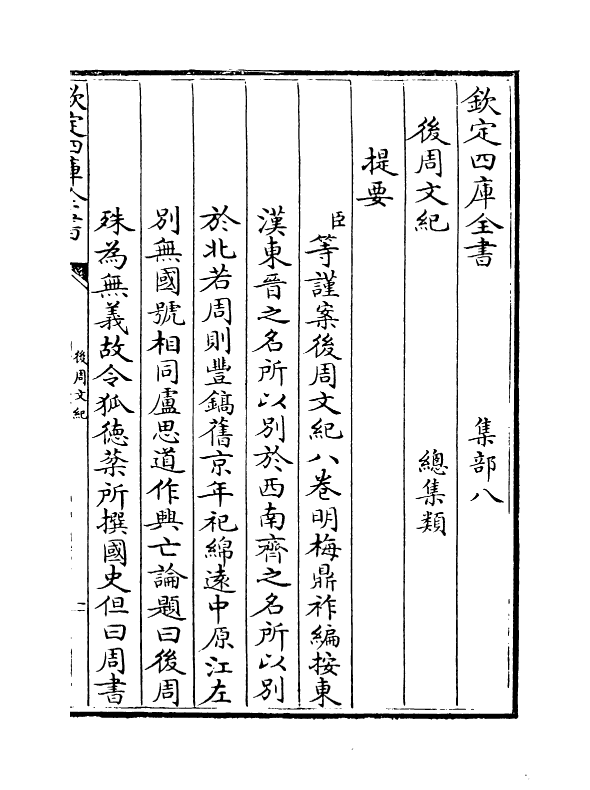 欽定四庫全書　集部八
後周文紀　總集類
提要
臣等謹案後周文紀八卷明梅鼎祚編按東
漢東晉之名所以別於西南齊之名所以別
於北若周則豐鎬舊京年祀綿遠中原江左
別無國號相同盧思道作興亡論題曰後周
殊為無義故令狐德棻所撰國史但曰周書
欽定四庫全書
後周文紀